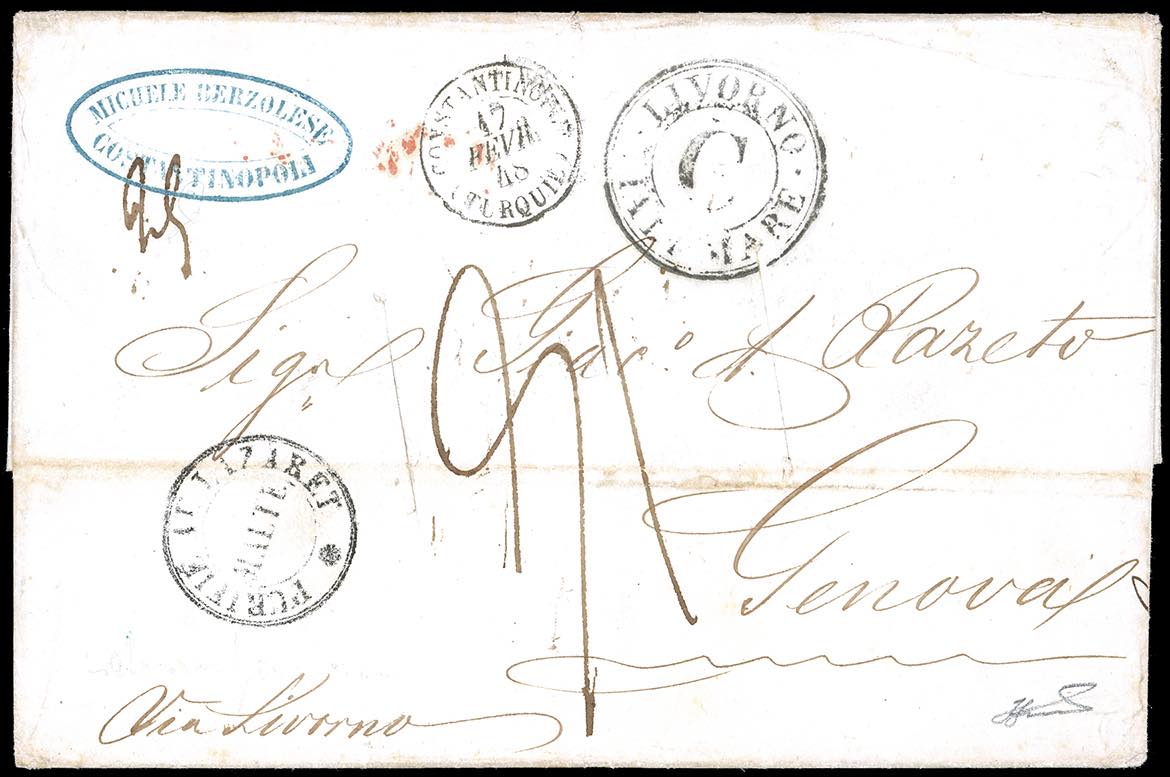 MICHELE BERZOLESE
COSTANTINOPOLI
CONSTANTINOPLE
17
FEVR
48
(TURQUIE)
LIVORNO
C
MARE
Sig.r Giac.o A. Razeto
PURIFIÉ AU LAZARET
MALTE
Genova
Via Livorno